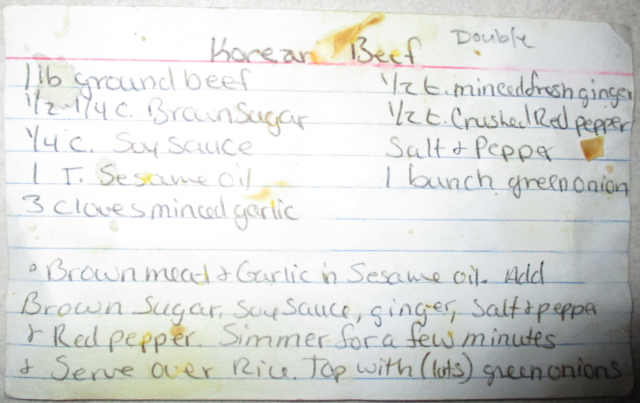 Korean Beef Double
1 lb ground beef
1/2-1/4 c. Brown Sugar
1/4 c. Soy Sauce
1 T. Sesame oil
3 cloves minced garlic
1/2 t. minced fresh ginger
1/2 t. Crushed Red pepper
Salt & Pepper
1 bunch green onion
° Brown meat & Garlic in Sesame oil. Add
Brown Sugar, Soy Sauce, ginger, Salt & pepper
& Red pepper. Simmer for a few minutes
& Serve over Rice. Top with (lots) green onions